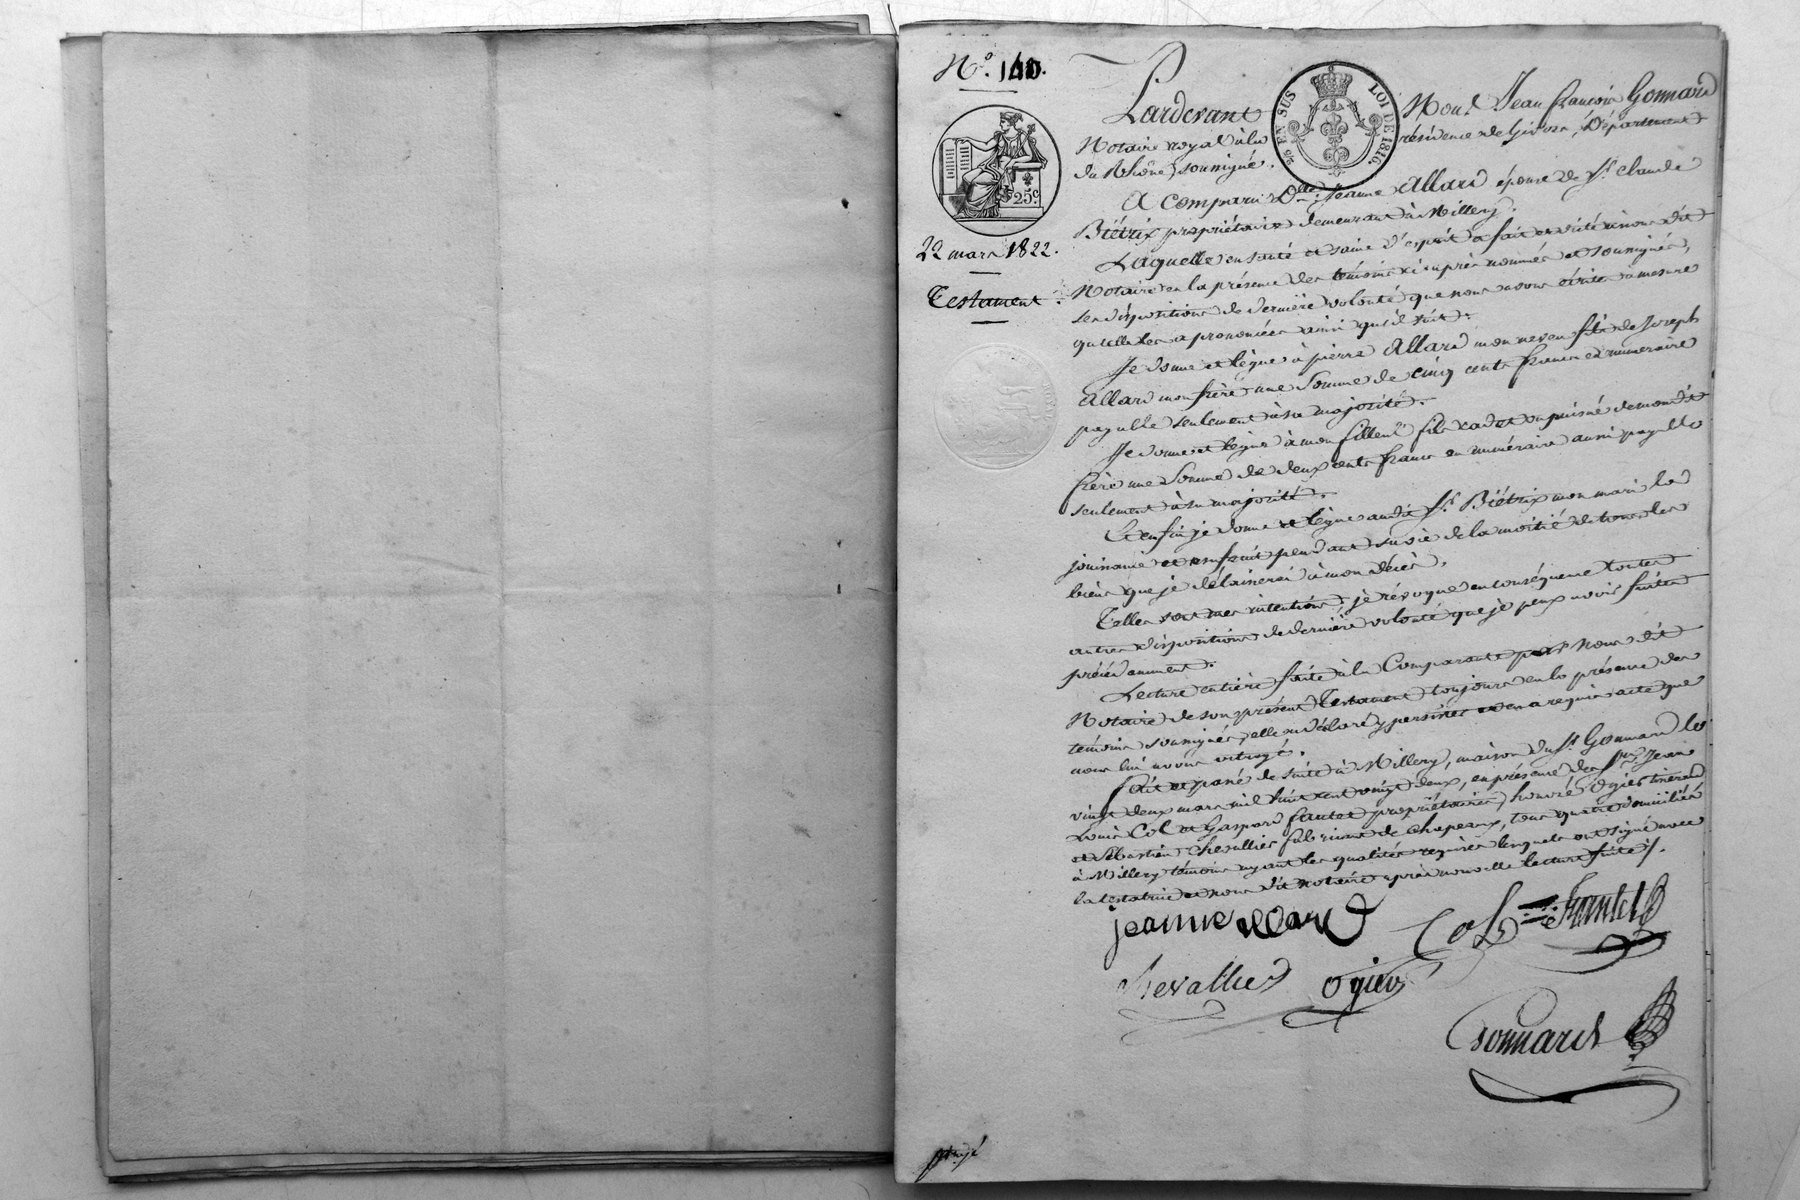 N.° 140.
25 EN SUS LOI DE 1816.
25c.
22 mars 1822.
Testament.
Pardevant Nous Jean françois Gonnard
Notaire royal à la résidence de Givors, Département
du Rhône, soussigné.
A comparu D.lle Jeanne Allard épouse de S.r Claude
Biétrix propriétaire demeurant à Millery.
Laquelle en santé et saine d'esprit a fait et dicté à nous dit
Notaire en la présence des témoins ci après nommés et soussignés,
ses dispositions de dernière volonté que nous avons écrites à mesure
qu'elle les a prononcées ainsi qu'il suit:
Je donne et lègue à pierre Allard mon neveu fils de Joseph
Allard mon frère une Somme de cinq cents francs en numéraire
payable seulement à sa majorité.
Je donne et lègue à mon filleul fils cadet ou puisné de mon dit
frère une Somme de deux cents francs en numéraire aussi payable
seulement à sa majorité.
Et enfin je donne et lègue audit S.r Biétrix mon mari la
jouissance et usufruit pendant sa vie de la moitié de tous les
biens que je délaisserai à mon décès.
Telles sont mes intentions, je révoque en conséquence toutes
autres dispositions de dernière volonté que je peux avoir faites
précédamment.
Lecture entière faite à la Comparante par Nous dit
Notaire de son présent Testament toujours en la présence des
témoins soussignés, elle a déclaré y persister et en a requis acte que
nous lui avons octroyé.
Fait et passé de suite à Millery, maison du S.r Gonnard le
vingt deux mars mil huit cent vingt deux, en présence des S.rs Jean
Louis Col et Gaspard fautet propriétaires, honoré Ogier tisserand
et Sébastien Chevallier fabricant de chapeaux, tous quatre domiciliés
à Millery témoins ayant les qualités requises lesquels ont signé avec
la testatrice et nous dit notaire après nouvelle lecture faite /.
jeanne allard Col Fautet
Chevallier Ogier
Gonnard